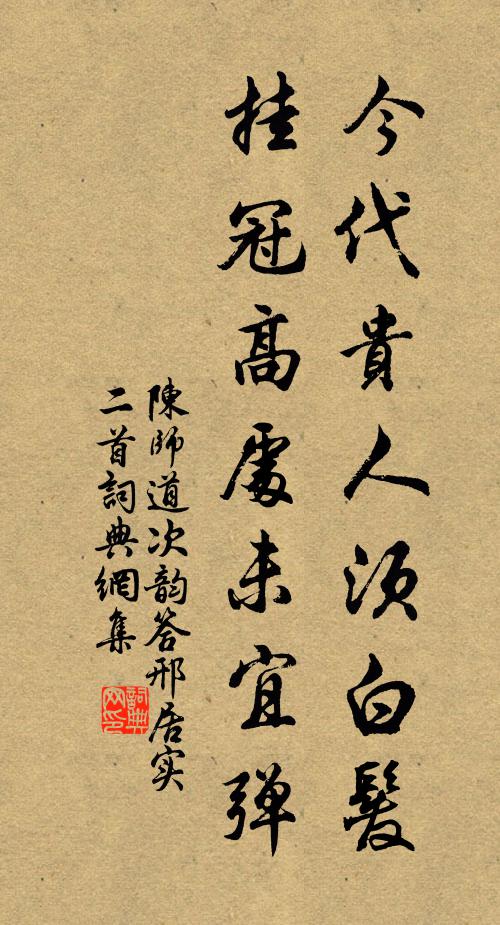 今代貴人須白髮
挂冠高處未宜彈
陳師道次韵答邢居实
二首詞典網集
詞典网印